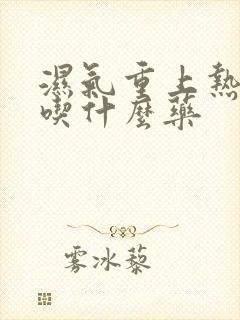 濕氣重上熱
喫什麼藥
雾冰藜